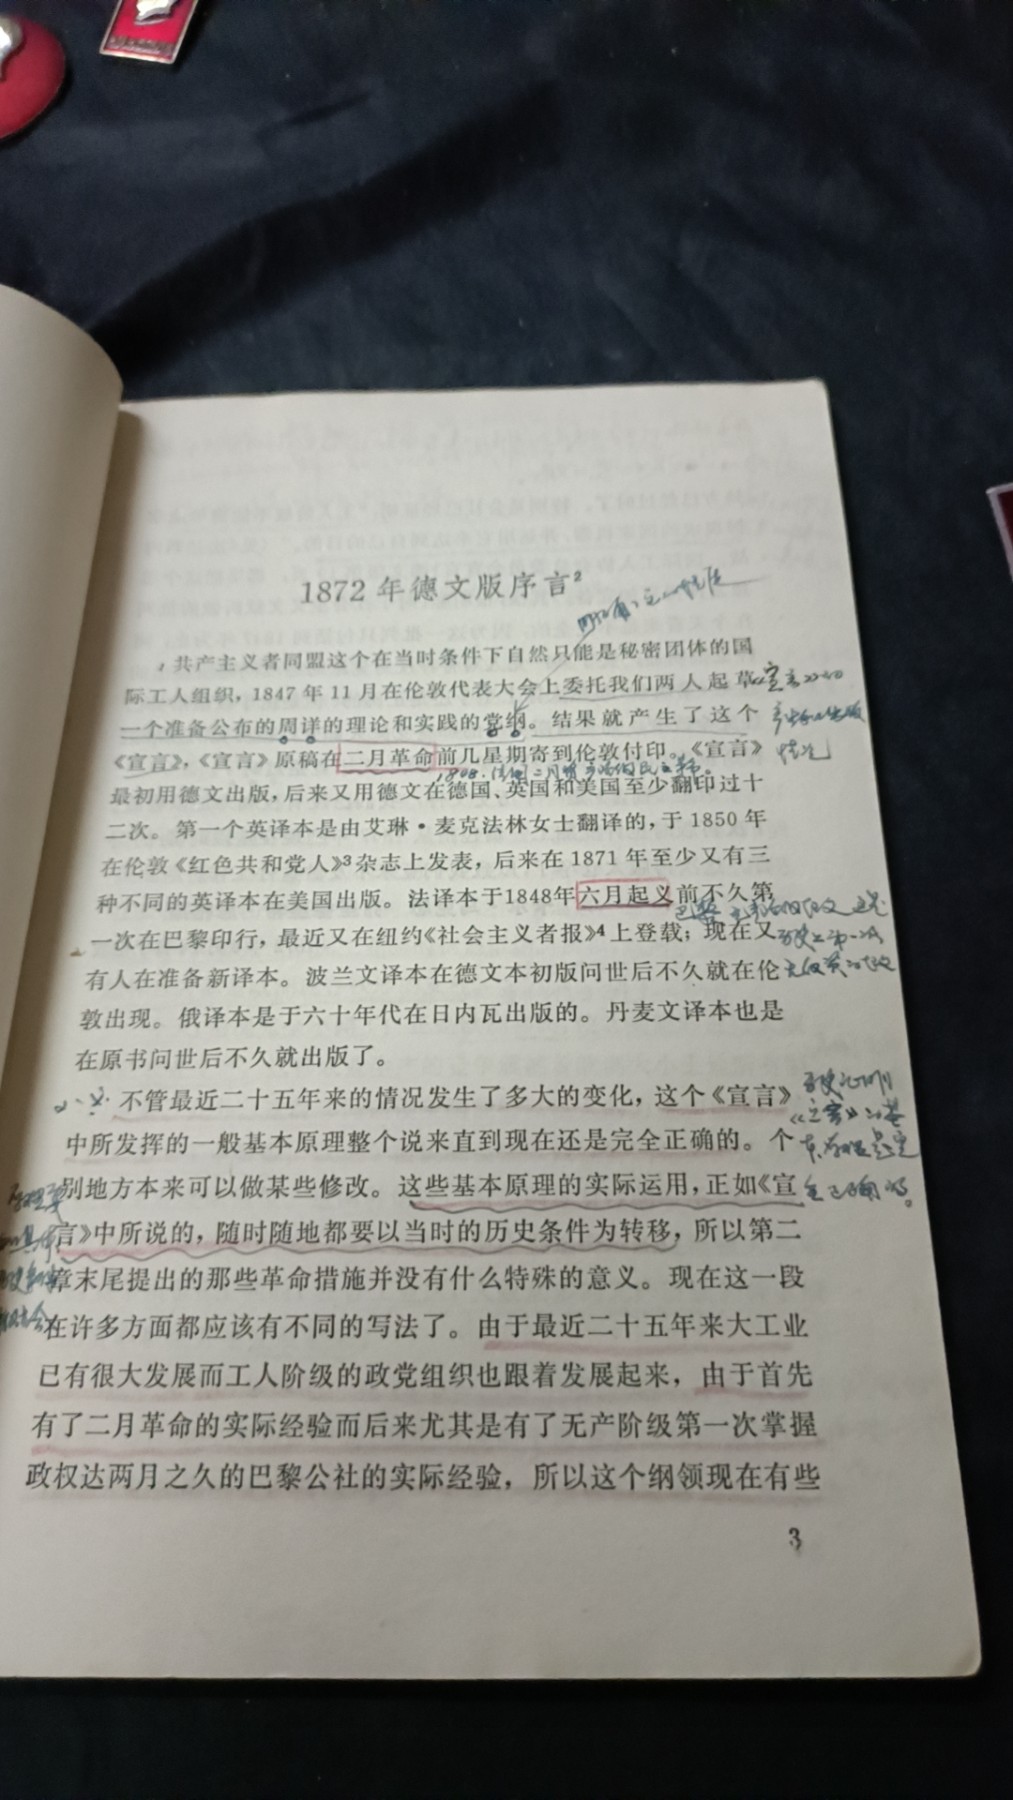 1872年德文版序言²
共产主义者同盟这个在当时条件下自然只能是秘密团体的国
际工人组织，1847年11月在伦敦代表大会上委托我们两人起草
一个准备公布的周详的理论和实践的党纲。结果就产生了这个
《宣言》，《宣言》原稿在二月革命前几星期寄到伦敦付印。《宣言》
最初用德文出版，后来又用德文在德国、英国和美国至少翻印过十
二次。第一个英译本是由艾琳·麦克法林女士翻译的，于1850年
在伦敦《红色共和党人》³杂志上发表，后来在1871年至少又有三
种不同的英译本在美国出版。法译本于1848年六月起义前不久第
一次在巴黎印行，最近又在纽约《社会主义者报》⁴上登载；现在又
有人在准备新译本。波兰文译本在德文本初版问世后不久就在伦
敦出现。俄译本是于六十年代在日内瓦出版的。丹麦文译本也是
在原书问世后不久就出版了。
不管最近二十五年来的情况发生了多大的变化，这个《宣言》
中所发挥的一般基本原理整个说来直到现在还是完全正确的。个
别地方本来可以做某些修改。这些基本原理的实际运用，正如《宣
言》中所说的，随时随地都要以当时的历史条件为转移，所以第二
章末尾提出的那些革命措施并没有什么特殊的意义。现在这一段
在许多方面都应该有不同的写法了。由于最近二十五年来大工业
已有很大发展而工人阶级的政党组织也跟着发展起来，由于首先
有了二月革命的实际经验而后来尤其是有了无产阶级第一次掌握
政权达两月之久的巴黎公社的实际经验，所以这个纲领现在有些
3